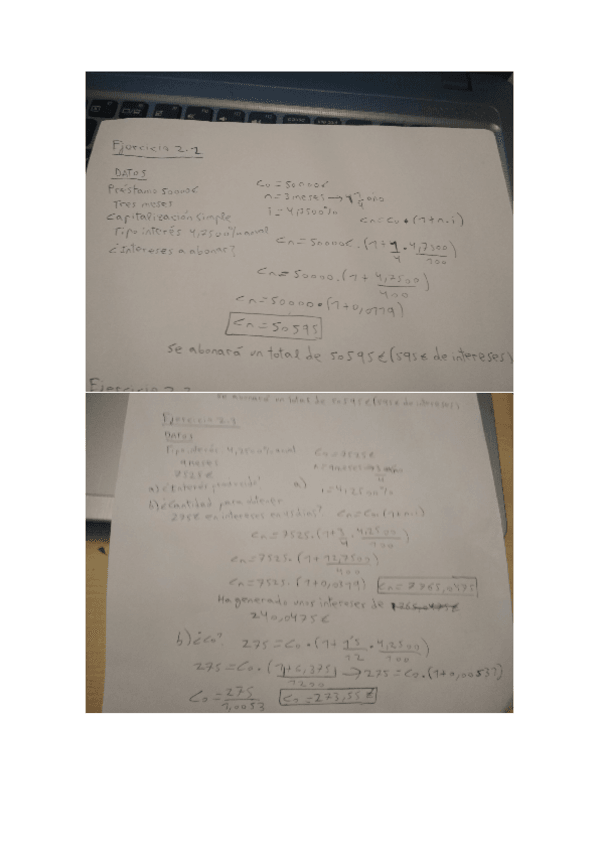 Ejercicio 2.1
DATOS
Préstamo 50000€
Tres meses
Capitalización simple
Tipo interés 4,7500% anual
¿Intereses a abonar?
C0 = 50000€
n = 3 meses → 1/4 año
i = 4,7500%
Cn = C0 • (1+n·i)
Cn = 50000€ · (1 + 1/4 • 4,7500/100)
Cn = 50000 · (1 + 4,7500/400)
Cn = 50000 • (1+0,0119)
Cn = 50595
Se abonará un total de 50595€ (595€ de intereses)
Se abonará un total de 50595€ (595€ de intereses)
DATOS
Tipo interés 4,2500% anual
9 meses
7525€
275€ en intereses en 45 días?
a)
C0 = 7525€
i = 4,2500%
Cn = C0 (1+n·i)
Cn = 7525 · (1 + 3/4 · 4,2500/100)
Cn = 7525 · (1 + 12,7500/400)
Cn = 7525 · (1+0,0319)
Cn = 7765,0475
Ha generado unos intereses de
240,0475€
b) ¿C0?
275 = C0 • (1 + 1'5/12 • 4,2500/100)
275 = C0 • (1 + 6,375/1200) → 275 = C0 • (1+0,00531)
C0 = 275/1,0053
C0 = 273,55€